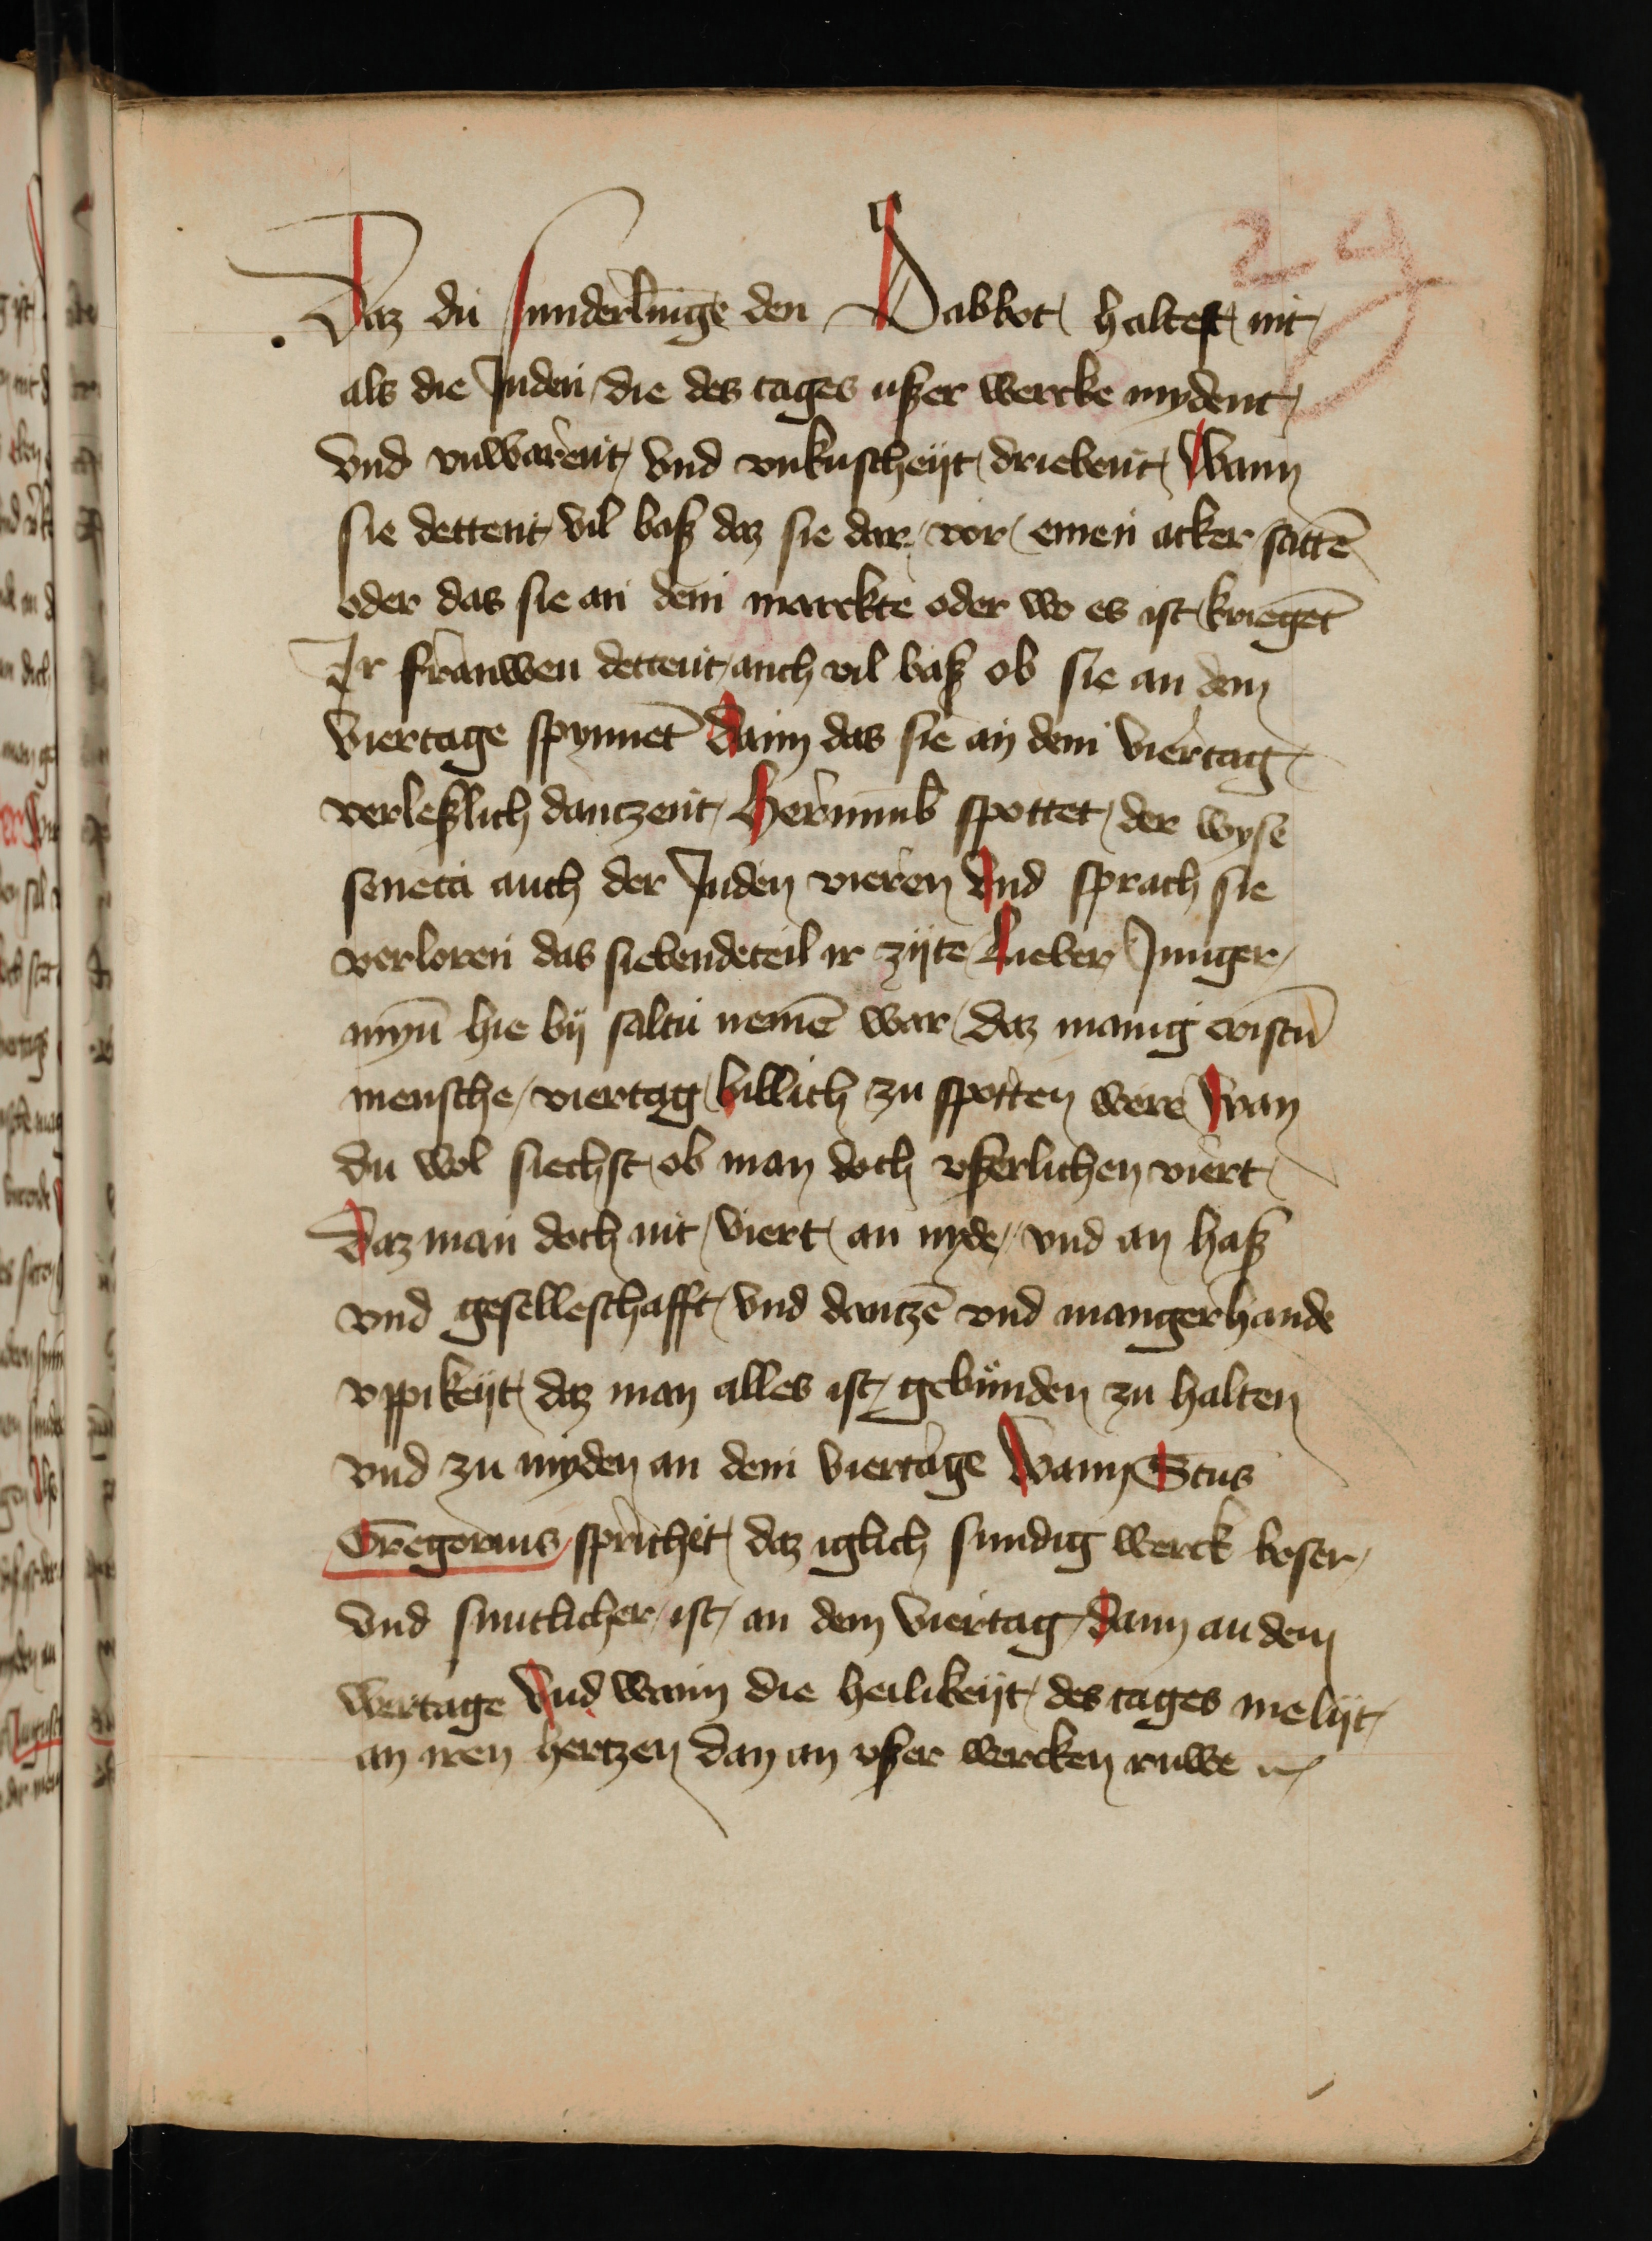 29
Daz du sunderlinge den Sabbot haltest nit
als die Juden die des tages ußer wercke mydent
vnd vnwarent vnd vnkuscheijt driebent Wann
sie dettent vil baß daz sie dar vor einen acker sattē
oder das sie an dem marckte oder wo es ist kriegēt
Ir frauwen dettent auch vil baß ob sie an dem
viertage spynnēt Dann das sie an dem viertag
verleßlich dantzent Herumb spottet der wyse
seneca auch der Juden vieren Vnd sprach sie
verloren das siebendeteil ir zijte Lieber Junger
myn̄ hie bij saltu nemē war daz manig cristn̄
mensche viertag billich zu spotten were Wan
du wol siechst ob man doch vßerlichen viert
Daz man doch nit viert an nyde vnd an haß
vnd geselleschafft vnd dantzē vnd mangerhande
vppikeijt daz man alles ist gebunden zu halten
vnd zu myden an dem viertage Wann Sctus
Gregorius sprichet daz iglich sundig werck boser
vnd suntlicher ist an dem viertag Dann an dem
wertage Vnd wann die heilikeijt des tages me lijt
an iren hertzen dan an vßer wercken ruwe